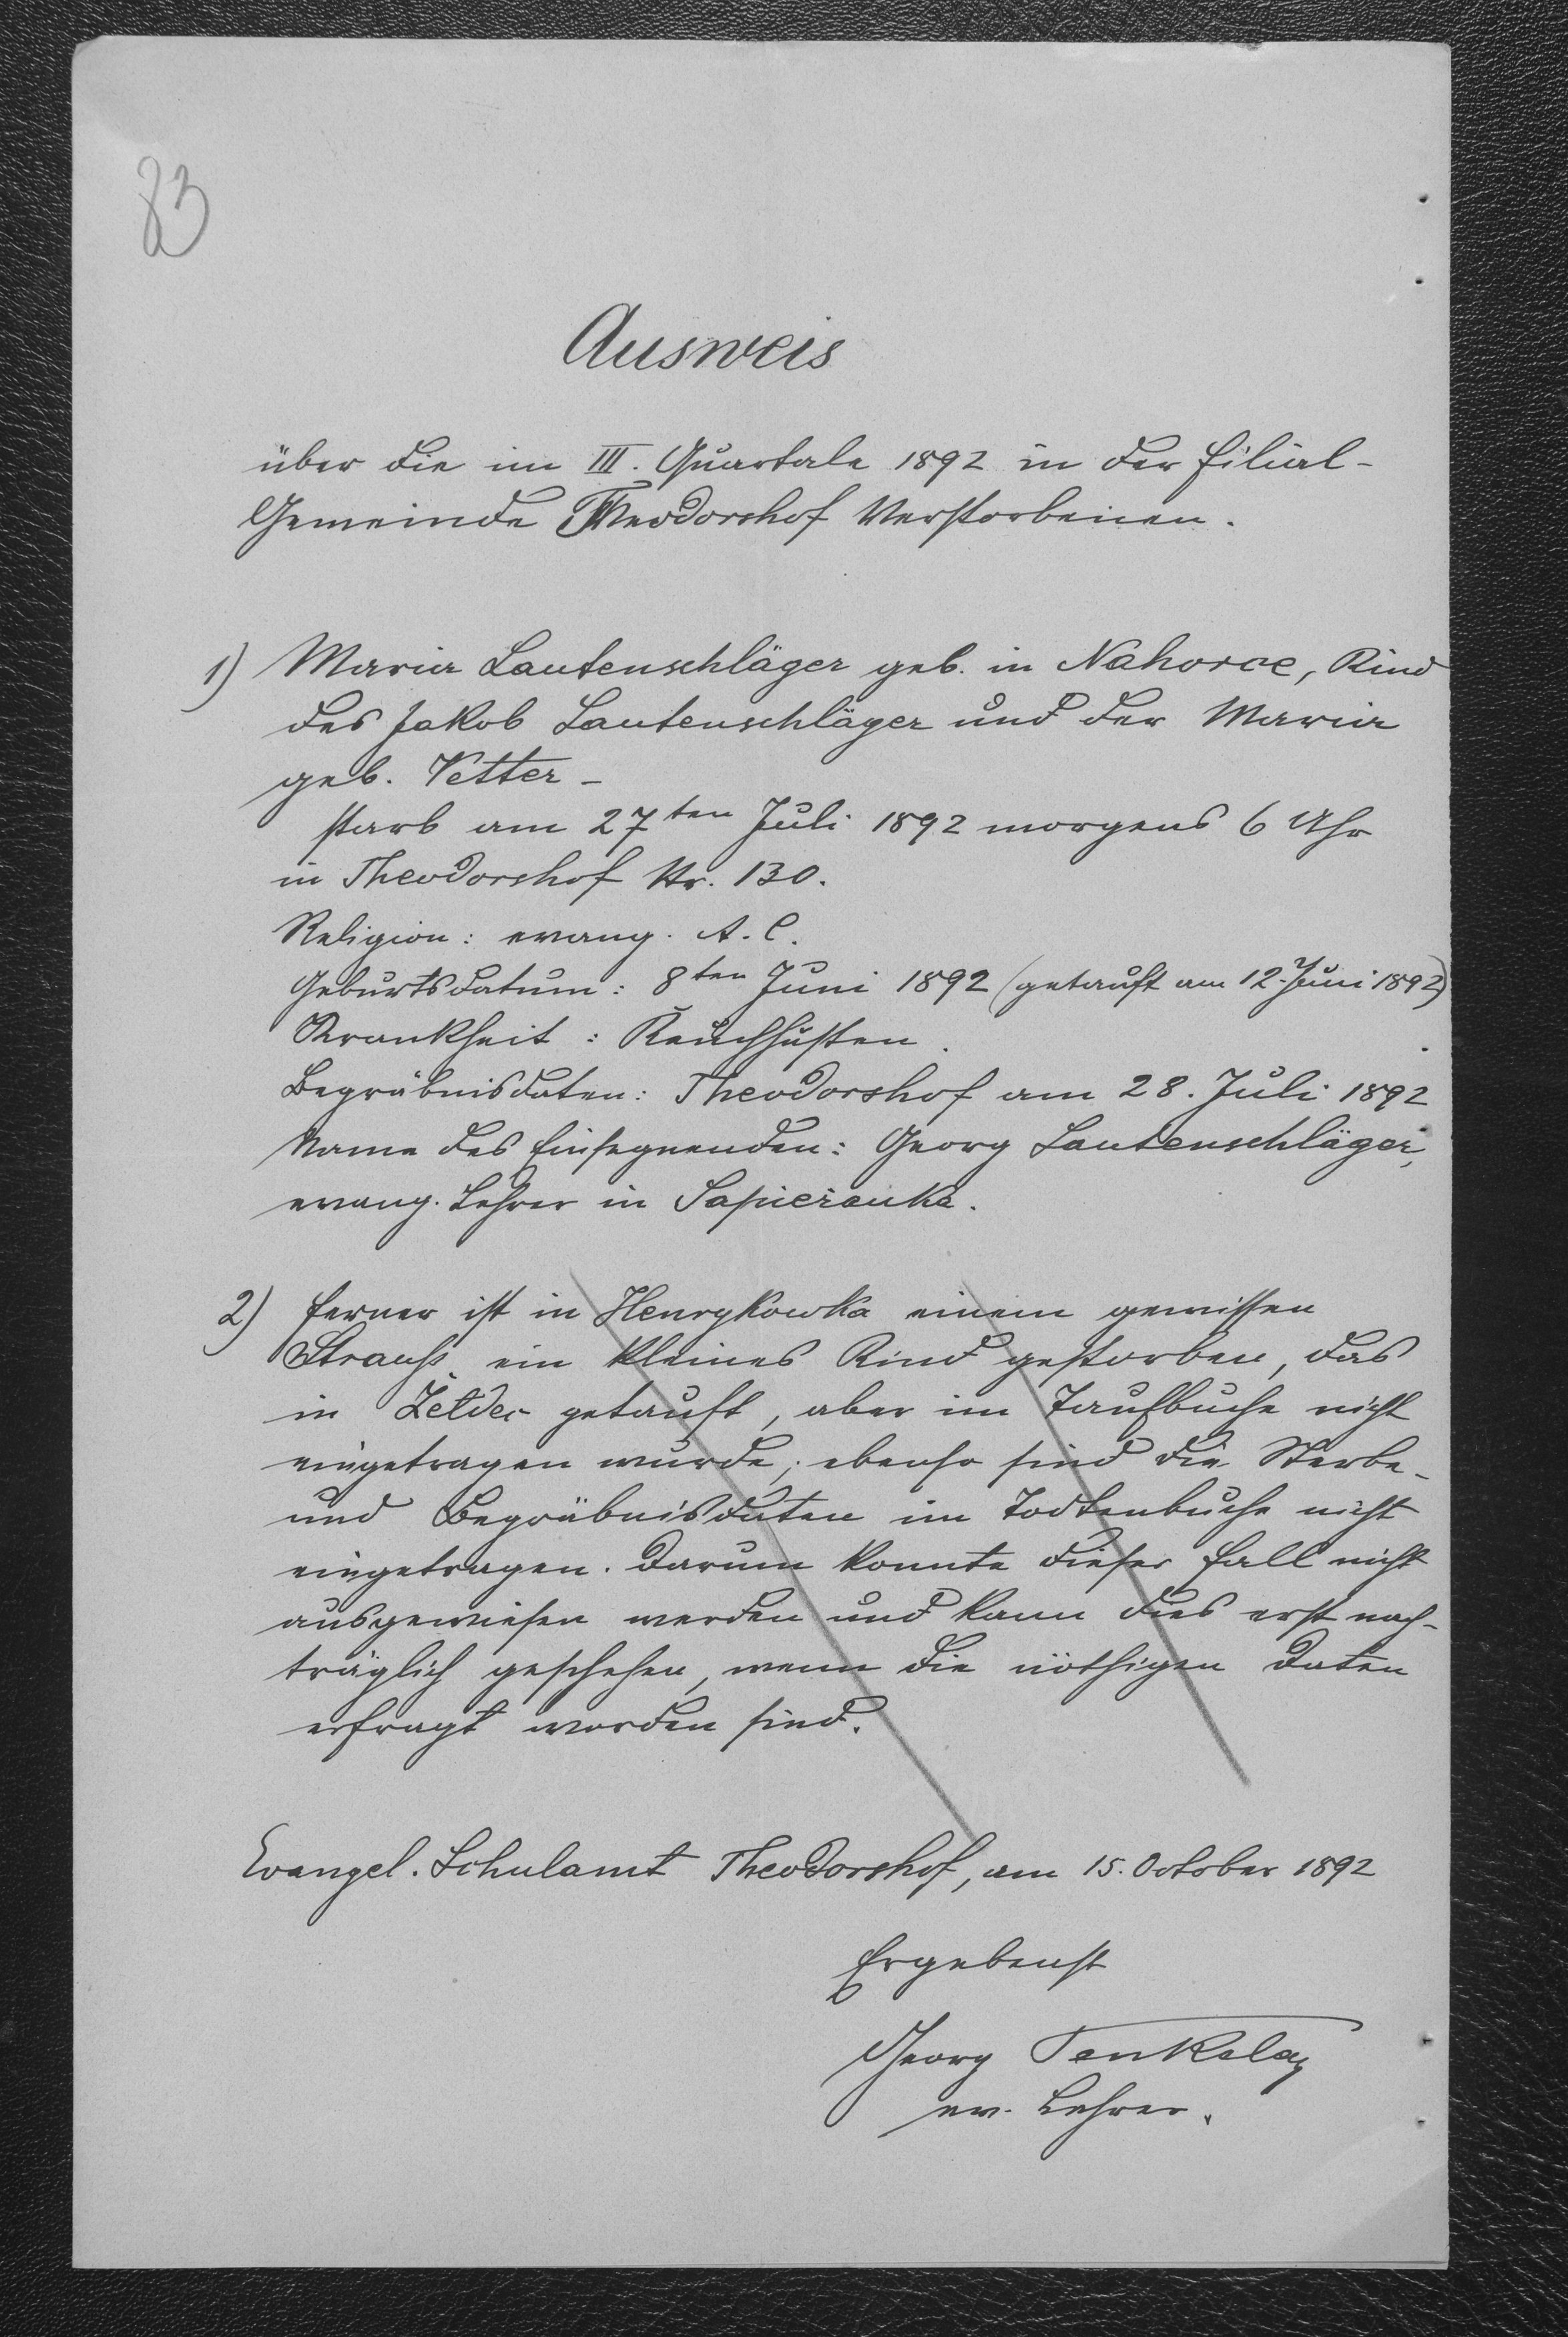 83
Ausweis
über die im III. Quartale 1892 in der Filial-
Gemeinde Theodorshof Verstorbenen.
1) Maria Lautenschläger geb. in Nahorce, Kind
des Jakob Lautenschläger und der Maria
geb. Vetter –
starb am 27ten Juli 1892 morgens 6 Uhr
in Theodorshof Nr. 130.
Religion: evang. A. C.
Geburtsdatum: 8ten Juni 1892 (getauft am 12. Juni 1892)
Krankheit: Keuchhusten.
Begräbnisdaten: Theodorshof am 28. Juli 1892
Name des Einsegnenden: Georg Lautenschläger,
evang. Lehrer in Sapieżanka.
2) Ferner ist in Henrykowka einem gewissen
Strauß ein kleines Kind gestorben, das
in Żeldec getauft, aber im Taufbuche nicht
eingetragen wurde; ebenso sind die Sterbe-
und Begräbnisdaten im Todtenbuche nicht
eingetragen. Darum konnte dieser Fall nicht
ausgewiesen werden und kann dies erst nach-
träglich geschehen, wenn die nöthigen Daten
erfragt worden sind.
Evangel. Schulamt Theodorshof, am 15. October 1892
Ergebenst
Georg
ev. Lehrer.